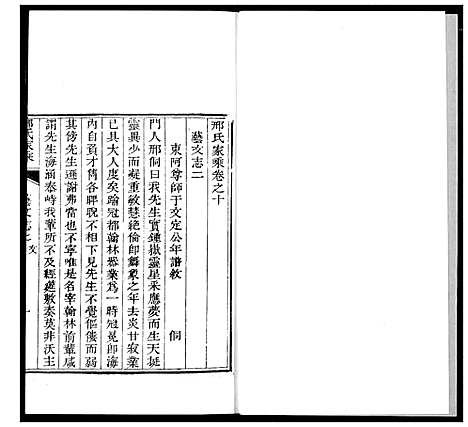 邢氏家乘卷之十
藝文志二
東阿尊師于文定公年譜敘 侗
門人邢侗曰我先生實鍾嶽靈星采應夢而生天挺
靈異少而凝重敏慧絕倫即舞象之年去炎甘寂業
已具大人度矣踰冠都翰林爲一時冠冕即海
內自負才儁各各睥睨不相下見先生不覺傴僂而弱
其傍先生遜謝弗當也不寧唯是名宰翰林前輩咸
謂先生海涵泰峙我輩所不及經筵敷奏莫非沃主